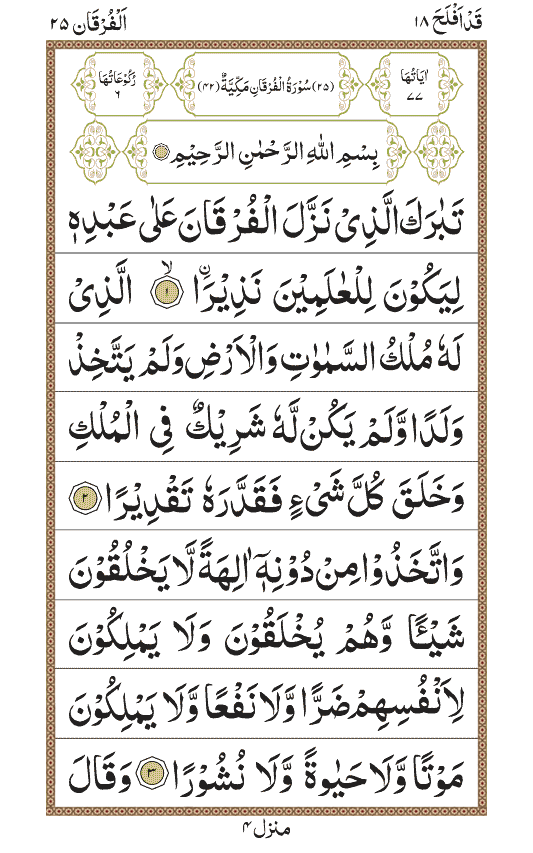 قَدۡ اَفۡلَحَ ۱۸
اَلۡفُرۡقَان ۲۵
اٰیَاتُهَا ۷۷
(۲۵) سُوۡرَةُ الۡفُرۡقَانِ مَکِّیَّةٌ (۴۲)
رُکُوۡعَاتُهَا ۶
بِسۡمِ اللّٰهِ الرَّحۡمٰنِ الرَّحِیۡمِ
تَبٰرَكَ الَّذِیۡ نَزَّلَ الۡفُرۡقَانَ عَلٰی عَبۡدِهٖ
لِیَكُوۡنَ لِلۡعٰلَمِیۡنَ نَذِیۡرَاۨ ۙ‏﴿۱﴾ الَّذِیۡ
لَهٗ مُلۡكُ السَّمٰوٰتِ وَالۡاَرۡضِ وَلَمۡ یَتَّخِذۡ
وَلَدًا وَّلَمۡ یَكُنۡ لَّهٗ شَرِیۡكٌ فِی الۡمُلۡكِ
وَخَلَقَ كُلَّ شَیۡءٍ فَقَدَّرَهٗ تَقۡدِیۡرًا ﴿۲﴾
وَاتَّخَذُوۡا مِنۡ دُوۡنِهٖۤ اٰلِهَةً لَّا یَخۡلُقُوۡنَ
شَیۡـًٔا وَّهُمۡ یُخۡلَقُوۡنَ وَلَا یَمۡلِكُوۡنَ
لِاَنۡفُسِهِمۡ ضَرًّا وَّلَا نَفۡعًا وَّلَا یَمۡلِكُوۡنَ
مَوۡتًا وَّلَا حَیٰوةً وَّلَا نُشُوۡرًا ﴿۳﴾ وَقَالَ
منزل ۴